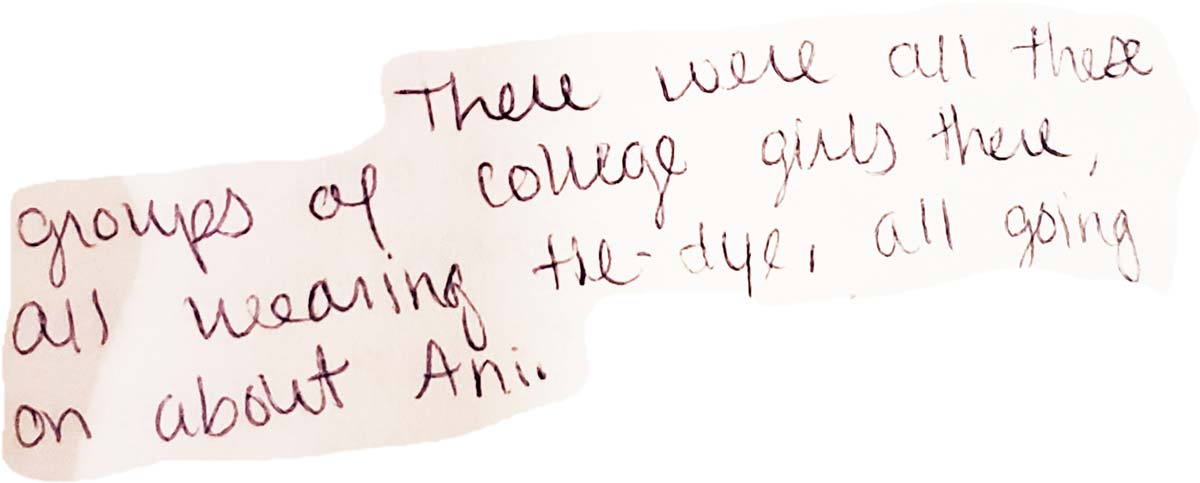 There were all these
groups of college girls there,
all wearing tie-dye, all going
on about Ani.